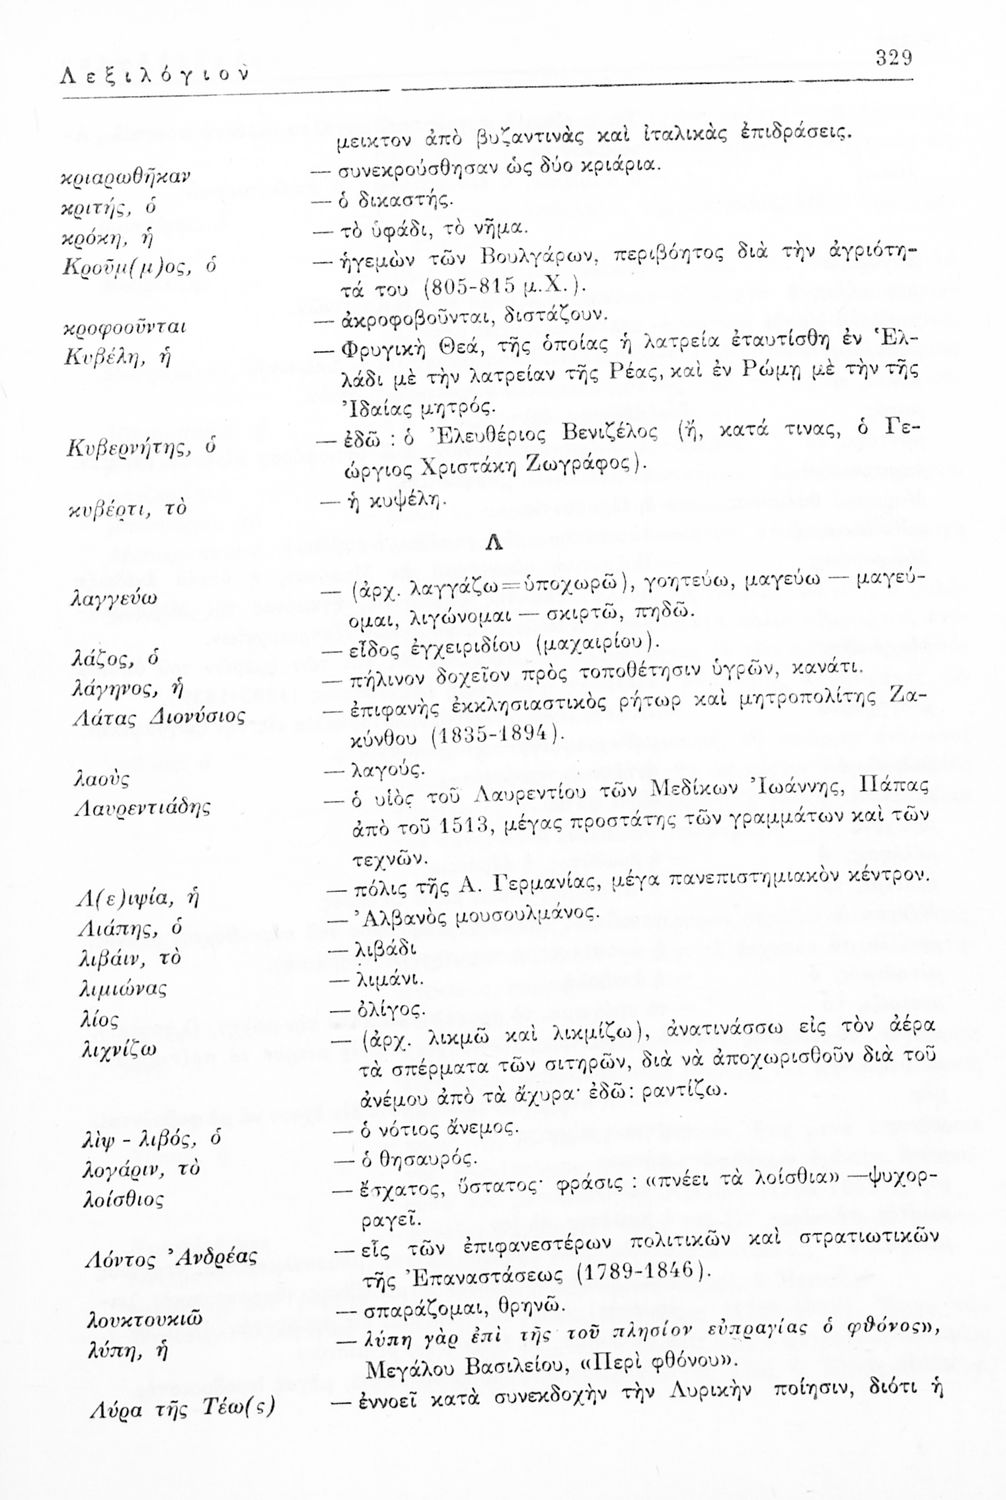 Λεξιλόγιον 329
μεικτον ἀπὸ βυζαντινὰς καὶ ἰταλικὰς ἐπιδράσεις.
κριαρωθῆκαν — συνεκρούσθησαν ὡς δύο κριάρια.
κριτής, ὁ — ὁ δικαστής.
κρόκη, ἡ — τὸ ὑφάδι, τὸ νῆμα.
Κροῦμ(μ)ος, ὁ — ἡγεμὼν τῶν Βουλγάρων, περιβόητος διὰ τὴν ἀγριότη-
τά του (805-815 μ.Χ.).
κροφοοῦνται — ἀκροφοβοῦνται, διστάζουν.
Κυβέλη, ἡ — Φρυγικὴ Θεά, τῆς ὁποίας ἡ λατρεία ἐταυτίσθη ἐν Ἑλ-
λάδι μὲ τὴν λατρείαν τῆς Ρέας, καὶ ἐν Ρώμῃ μὲ τὴν τῆς
Ἰδαίας μητρός.
Κυβερνήτης, ὁ — ἐδῶ : ὁ Ἐλευθέριος Βενιζέλος (ἤ, κατά τινας, ὁ Γε-
ώργιος Χριστάκη Ζωγράφος).
κυβέρτι, τὸ — ἡ κυψέλη.
Λ
λαγγεύω — (ἀρχ. λαγγάζω=ὑποχωρῶ), γοητεύω, μαγεύω — μαγεύ-
ομαι, λιγώνομαι — σκιρτῶ, πηδῶ.
λάζος, ὁ — εἶδος ἐγχειριδίου (μαχαιρίου).
λάγηνος, ἡ — πήλινον δοχεῖον πρὸς τοποθέτησιν ὑγρῶν, κανάτι.
Λάτας Διονύσιος — ἐπιφανὴς ἐκκλησιαστικὸς ρήτωρ καὶ μητροπολίτης Ζα-
κύνθου (1835-1894).
λαοὺς — λαγούς.
Λαυρεντιάδης — ὁ υἱὸς τοῦ Λαυρεντίου τῶν Μεδίκων Ἰωάννης, Πάπας
ἀπὸ τοῦ 1513, μέγας προστάτης τῶν γραμμάτων καὶ τῶν
τεχνῶν.
Λ(ε)ιψία, ἡ — πόλις τῆς Α. Γερμανίας, μέγα πανεπιστημιακὸν κέντρον.
Λιάπης, ὁ — Ἀλβανὸς μουσουλμάνος.
λιβάιν, τὸ — λιβάδι
λιμιώνας — λιμάνι.
λίος — ὀλίγος.
λιχνίζω — (ἀρχ. λικμῶ καὶ λικμίζω), ἀνατινάσσω εἰς τὸν ἀέρα
τὰ σπέρματα τῶν σιτηρῶν, διὰ νὰ ἀποχωρισθοῦν διὰ τοῦ
ἀνέμου ἀπὸ τὰ ἄχυρα· ἐδῶ: ραντίζω.
λὶψ - λιβός, ὁ — ὁ νότιος ἄνεμος.
λογάριν, τὸ — ὁ θησαυρός.
λοίσθιος — ἔσχατος, ὕστατος· φράσις : «πνέει τὰ λοίσθια» —ψυχορ-
ραγεῖ.
Λόντος Ἀνδρέας — εἷς τῶν ἐπιφανεστέρων πολιτικῶν καὶ στρατιωτικῶν
τῆς Ἐπαναστάσεως (1789-1846).
λουκτουκιῶ — σπαράζομαι, θρηνῶ.
λύπη, ἡ — λύπη γὰρ ἐπὶ τῆς τοῦ πλησίον εὐπραγίας ὁ φθόνος»,
Μεγάλου Βασιλείου, «Περὶ φθόνου».
Λύρα τῆς Τέω(ς) — ἐννοεῖ κατὰ συνεκδοχὴν τὴν Λυρικὴν ποίησιν, διότι ἡ